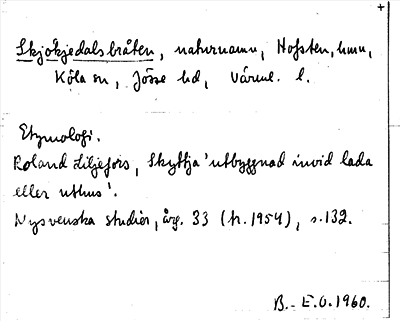 +
Skjokjedalsbråten, naturnamn, Hofsten, hmn,
Köla sn, Jösse hd, Värml. l.
Etymologi.
Roland Liljefors, Skyttja 'utbyggnad invid lada
eller uthus'.
Nysvenska studier, årg. 33 (tr. 1954), s. 132.
B.-E.O. 1960.